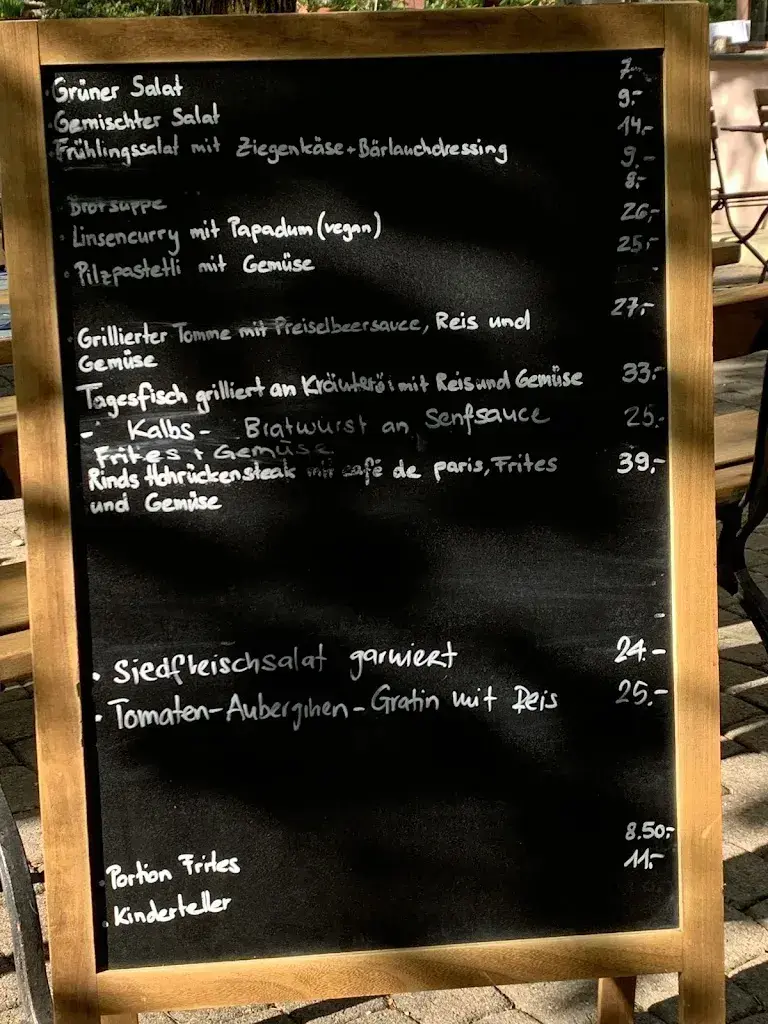 Grüner Salat 7.-
Gemischter Salat 9.-
Frühlingssalat mit Ziegenkäse + Bärlauchdressing 14,-
9.-
Brotsuppe 8.-
Linsencurry mit Papadum (vegan) 26,-
Pilzpastetli mit Gemüse 25,-
Grillierter Tomme mit Preiselbeersauce, Reis und 27.-
Gemüse
Tagesfisch grilliert an Kräuteröl mit Reis und Gemüse 33.-
- Kalbs - Bratwurst an Senfsauce 25.-
Frites + Gemüse
Rinds Hohrückensteak mit café de paris, Frites 39,-
und Gemüse
Siedfleischsalat garniert 24.-
Tomaten-Auberginen-Gratin mit Reis 25.-
Portion Frites 8.50.-
Kinderteller 11.-